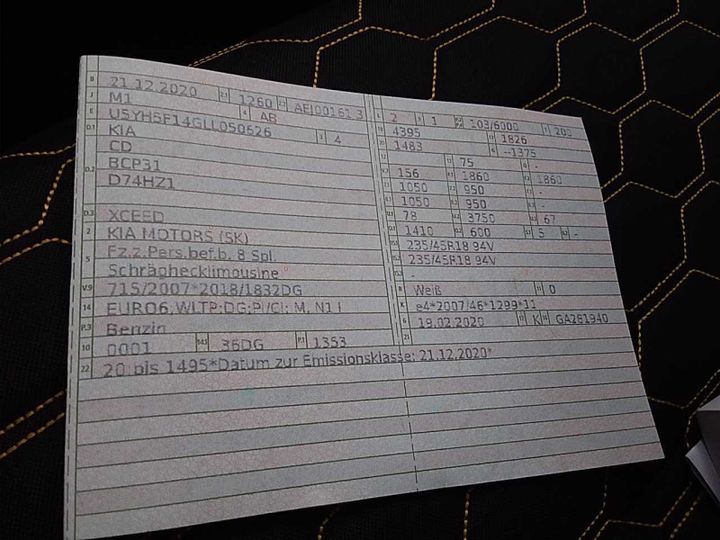 B 21.12.2020 2.1 1260 2.2 AEJ00161 3
J M1 4 AB
E U5YH5F14GLL050626 3 4
D.1 KIA
CD
D.2 BCP31
D74HZ1
D.3 XCEED
2 KIA MOTORS (SK)
5 Fz.z.Pers.bef.b. 8 Spl.
Schräghecklimousine
V.9 715/2007*2018/1832DG
14 EURO6;WLTP;DG;PI/CI; M, N1 I
P.3 Benzin
10 0001 14.1 36DG P.1 1353
22 20:bis 1495*Datum zur Emissionsklasse: 21.12.2020*
L 2 9 1 P.2 P.4 103/6000 T 200
18 4395 19 1826
1483 G --1375
75 -
156 1860 1860
1050 950 -
1050 950 -
78 3750 67
1410 600 5 -
235/45R18 94V
235/45R18 94V
-
R Weiß 11 0
K e4*2007/46*1299*11
6 19.02.2020 17 K 16 GA281940
21